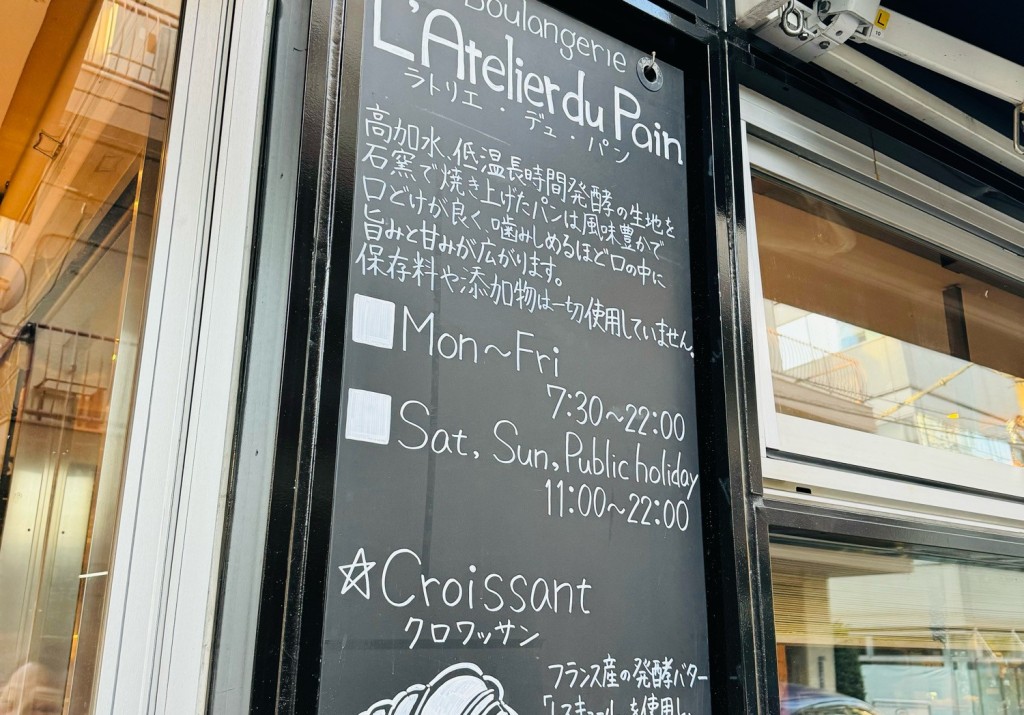 Boulangerie
L'Atelier du Pain
ラトリエ・デュ・パン
高加水、低温長時間発酵の生地を
石窯で焼き上げたパンは風味豊かで
口どけが良く、噛みしめるほど口の中に
旨みと甘みが広がります。
保存料や添加物は一切使用していません。
Mon～Fri
7:30～22:00
Sat, Sun, Public holiday
11:00～22:00
☆Croissant
クロワッサン
フランス産の発酵バター
「レスキュール」を使用し
L